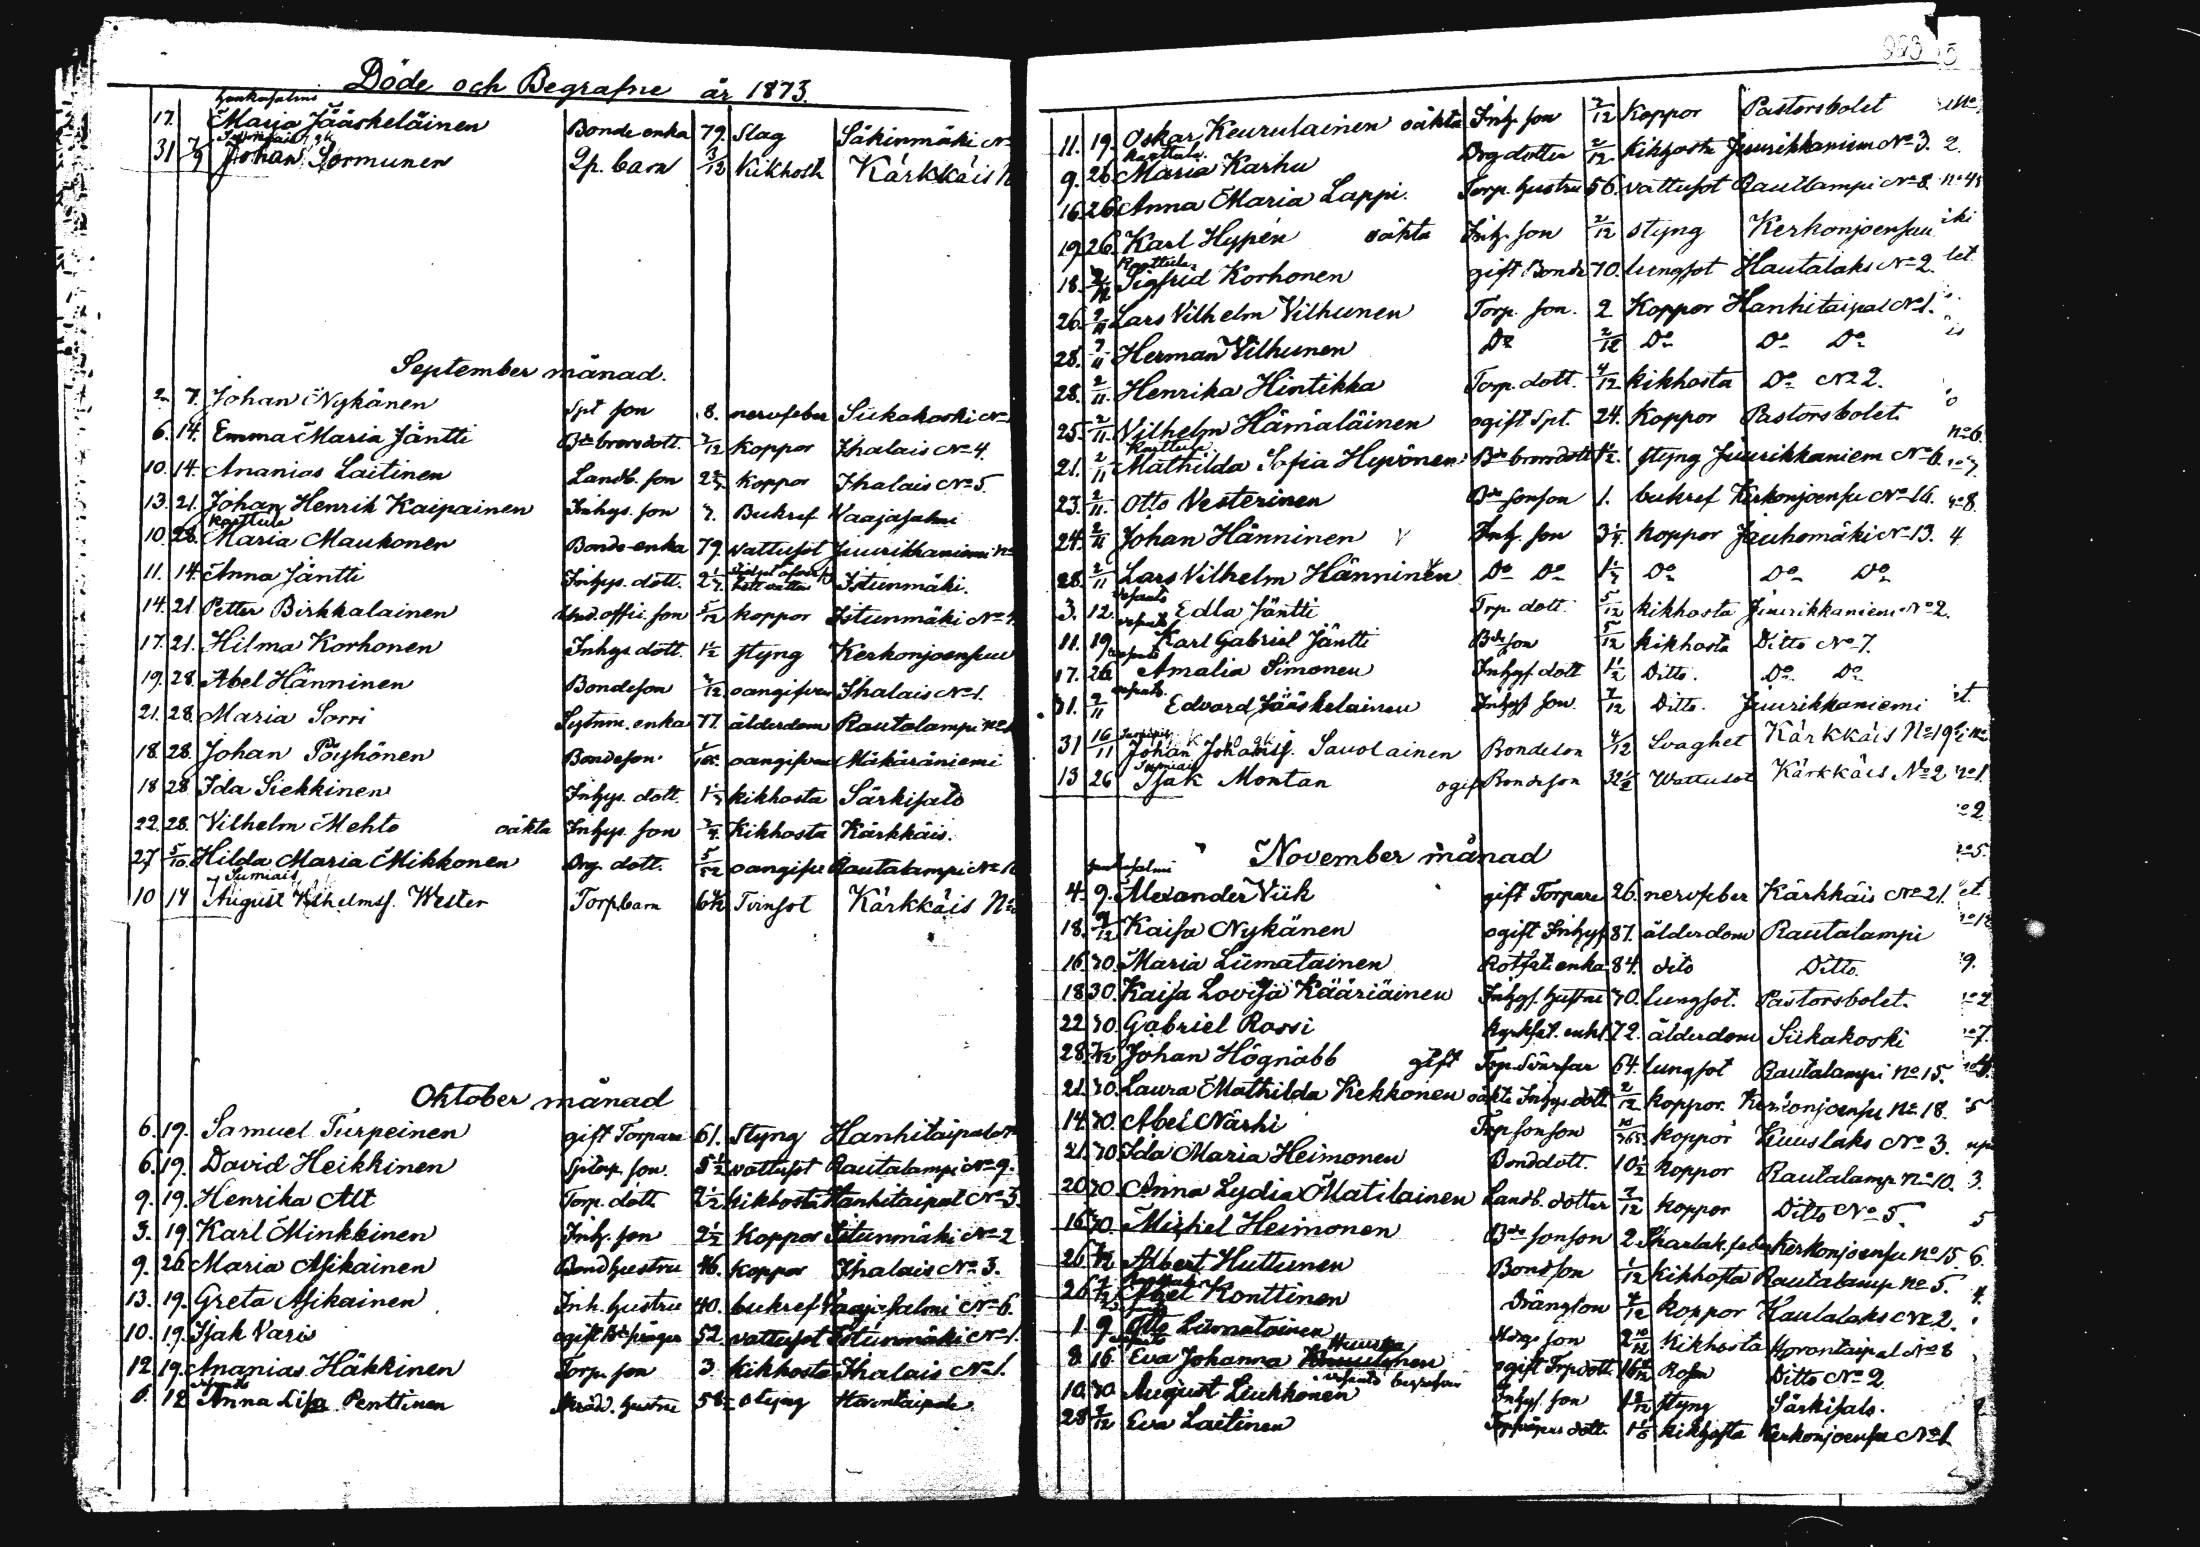 Döde och Begrafne år 1873.
Hankasalmi
17. Maria Jääskeläinen Bonde enka 79. Slag Säkinmäki No
Sumiais
31 7/9 Johan Sormunen Sp. barn 3/12 Kikhosta Kärkkäis N
September månad.
2. 7. Johan Nykänen Spt son 8. nervfeber Siikakoski No
6. 14. Emma Maria Jäntti Bde brorsdott. 7/12 koppor Ihalais No 4.
10. 14. Ananias Laitinen Landb. son koppor Ihalais No 5.
13. 21. Johan Henrik Kaipainen Inhys. son 7. Bukref Vaajasalmi
Karttula
10. 28. Maria Maukonen Bonde enka 79. vattusot Juurikkaniemi No
11. 14. Anna Jäntti Inhys. dott. hett vatten Istunmäki.
14. 21. Petter Birkkalainen Und. offic. son 5/12 koppor Istunmäki No 4.
17. 21. Hilma Korhonen Inhys dott. 1 1/2 styng Kerkonjoensuu
19. 28. Abel Hänninen Bondeson oangifven Ihalais No 1.
21. 28. Maria Sorri Sytnm. enka 77. ålderdom Rautalampi No
18. 28. Johan Pöyhönen Bondeson oangifven Mäkäräniemi
18 28. Ida Siekkinen Inhys. dott. kikhosta Särkisalo
22. 28. Vilhelm Mehto oäkta Inhys. son Kikhosta Kärkkäis.
27 5/10. Hilda Maria Mikkonen Drg. dott. 5/12 oangifv Rautalampi No
Sumiais
10 14 August Vilhelmss. Wester Torp.barn Tvinsot Kärkkäis No
Oktober månad
6. 19. Samuel Turpeinen gift Torpare 61. Styng Hanhitaipale
6. 19. David Heikkinen son. 5 1/2 vattusot Rautalampi No 9.
9. 19. Henrika Alt Torp. dott. 2 1/2 kikhosta Hanhitaipal No 3.
3. 19. Karl Minkkinen Inhy. son 2 1/2 koppor Istunmäki No 2
9. 26 Maria Asikainen Bond hustru 46. koppor Ihalais No 3.
13. 19. Greta Asikainen Inh. hustru 40. bukref Vaajasalmi No 6.
10. 19. Isak Vari ogift 52. vattusot Istunmäki No 1.
12. 19. Ananias Häkkinen Torp. son 3. kikhosta Ihalais No 1.
6. 12 Anna Lisa Penttinen hustru styng
11. 19. Oskar Keurulainen oäkta Inhy. son 7/12 Koppor Pastorsbolet
Karttula.
9. 26 Maria Karhu Drg dotter 2/12 kikhosta Juurikkaniem No 3.
16. 26 Anna Maria Lappi. Torp. hustru 56. vattusot Rautlampi No 8.
19. 26. Karl Hypén oäkta Inhy. son 2/12 styng Kerkonjoensuu
Karttula
18. Sigfrid Korhonen gift Bonde 70. lungsot Hautalaks No 2.
26. 2/11 Lars Vilhelm Vilhunen Torp. son. 2 Koppor Hanhitaipal No 1.
28. 2/11 Herman Vilhunen Do 2/12 Do Do Do
28. 2/11 Henrika Hintikka Torp. dott. 4/12 kikhosta Do No 2.
25. 2/11. Vilhelm Hämäläinen ogift Spt. 24. Koppor Pastorsbolet.
Karttula
21. 2/11 Mathilda Sofia Hyvönen Bde brorsdott styng Juurikkaniem No 6.
23. 2/11. Otto Vesterinen Bde sonson 1. bukref Kerkonjoensu No 16.
24. 2/11 Johan Hänninen Inhy. son koppor Jauhomäki No 13.
28. 2/11 Lars Vilhelm Hänninen Do Do Do Do Do
Vesanto
3. 12. Edla Jäntti Trp. dott. 5/12 kikhosta Juurikkaniem No 2.
Vesanto
11. 19 Karl Gabriel Jäntti Bde son 5/12 kikhosta Ditto No 7.
Vesanto
17. 26 Amalia Simonen Inhys dott 1 1/2 Ditto. Do Do
Vesanto.
31. 2/11 Edvard Jääskelainen Inhys son. 7/12 Ditto. Juurikkaniemi
Sumiais
31 16/11 Johan Johanss. Savolainen Bondeson 4/12 Svaghet Kärkkäis No 19
Sumiais
13 26 Isak Montan ogif Bondeson 32 1/2 Wattusot Kärkkäis No 2
November månad
Hankasalmi
4. 9. Alexander Viik gift Torpare 26. nervfeber Kärkkäis No 21.
18. Kaisa Nykänen ogift Inhys 87. ålderdom Rautalampi
16. 30. Maria Liimatainen Rotfat. enka 84. dito Ditto.
18 30. Kaisa Lovisa Kääriäinen Inhys. hustru 70. lungsot. Pastorsbolet.
22 30. Gabriel Rossi 72. ålderdom Siikakoski
28. 7/12 Johan Högnäbb gift Torp. Svärfar 64. lungsot Rautalampi No 15.
21. 30. Laura Mathilda Kekkonen oäkta Inhys dott. 2/12 koppor. Kerkonjoensu No 18.
14. 30. Abel Närhi Trp sonson 10/365 koppor Kuuslaks No 3.
21. 30 Ida Maria Heimonen Bonddott. 10 1/2 koppor Rautalamp No 10.
20 30. Anna Lydia Matilainen Landb. dotter 7/12 koppor Ditto No 5.
16. 30. Michel Heimonen Bde sonson 2. Skarlak. feber Kerkonjoensu No 15
26 7/12 Albert Huttunen Bondson 1/12 kikhosta Rautalamp No 5.
26 7/12 Abel Konttinen drängson koppor Hautalaks No 2.
1. 9. Otto Liimatainen son Kikhosta No 8
Huuska
8. 16. Eva Johanna ogift Trp dott Rosen Ditto No 2.
Vesanto begrafven
10. 30 August Liukkonen Inhys. son styng Särkisalo.
28 7/12 Eva Laitinen dott. kikhosta Kerkonjoensu No 1.